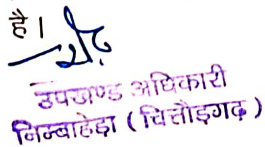 है।
उपखण्ड अधिकारी
निम्बाहेड़ा (चित्तौड़गढ़)